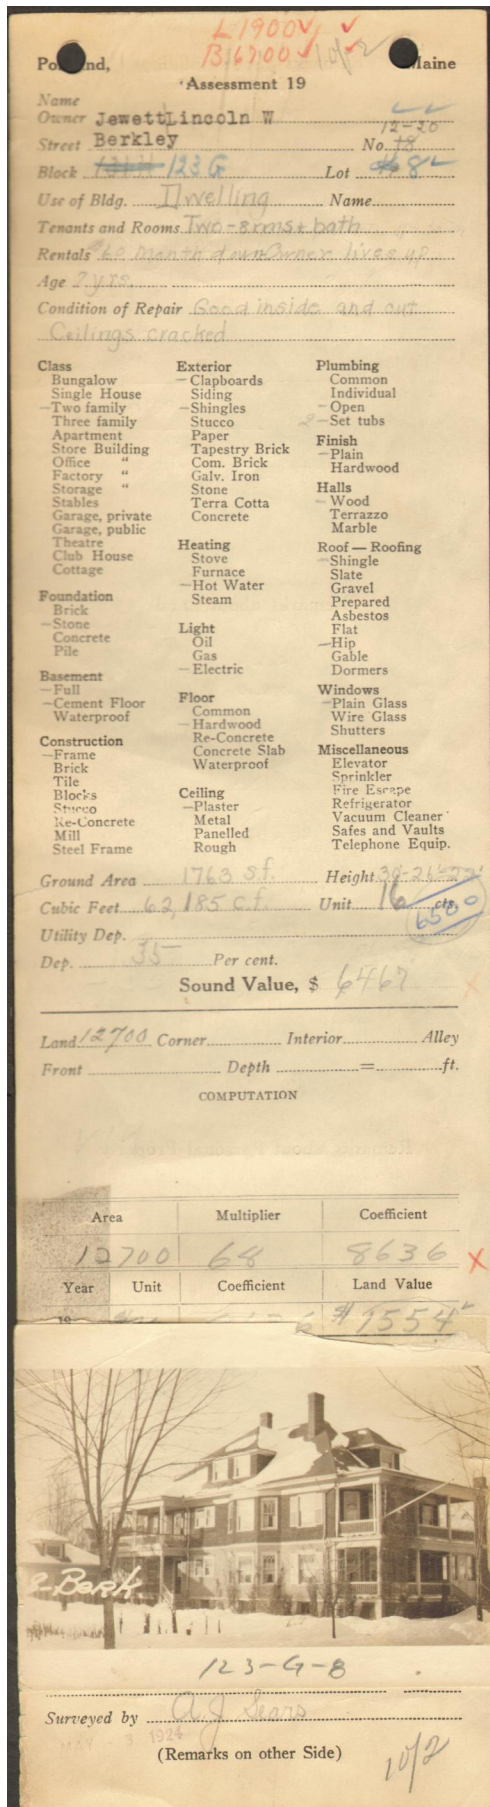 L 1900
B 6700
10/2
Portland, Maine
Assessment 19
Name
Owner JewettLincoln W
12-20
Street Berkley No. 18
Block 123 G Lot 8
Use of Bldg. Dwelling Name
Tenants and Rooms Two-8 rms + bath
Rentals $60 month down Owner lives up
Age 7 yrs.
Condition of Repair Good inside and out
Ceilings cracked
Class
Bungalow
Single House
-Two family
Three family
Apartment
Store Building
Office "
Factory "
Storage "
Stables
Garage, private
Garage, public
Theatre
Club House
Cottage
Foundation
Brick
-Stone
Concrete
Pile
Basement
-Full
-Cement Floor
Waterproof
Construction
-Frame
Brick
Tile
Blocks
Stucco
Re-Concrete
Mill
Steel Frame
Exterior
-Clapboards
Siding
-Shingles
Stucco
Paper
Tapestry Brick
Com. Brick
Galv. Iron
Stone
Terra Cotta
Concrete
Heating
Stove
Furnace
-Hot Water
Steam
Light
Oil
Gas
-Electric
Floor
Common
-Hardwood
Re-Concrete
Concrete Slab
Waterproof
Ceiling
-Plaster
Metal
Panelled
Rough
Plumbing
Common
Individual
-Open
2-Set tubs
Finish
-Plain
Hardwood
Halls
-Wood
Terrazzo
Marble
Roof — Roofing
-Shingle
Slate
Gravel
Prepared
Asbestos
Flat
-Hip
Gable
Dormers
Windows
-Plain Glass
Wire Glass
Shutters
Miscellaneous
Elevator
Sprinkler
Fire Escape
Refrigerator
Vacuum Cleaner
Safes and Vaults
Telephone Equip.
Ground Area 1763 s.f. Height
Cubic Feet 62,185 c.f. Unit 16 cts.
6500
Utility Dep.
Dep. 35 Per cent.
Sound Value, $ 6467
Land 12700 Corner Interior Alley
Front Depth = ft.
COMPUTATION
Area Multiplier Coefficient
12700 68 8636
Year Unit Coefficient Land Value
19 $1554
8-Berk.
123-G-8
Surveyed by A. J. Sears
MAY 3 1924
(Remarks on other Side)
10/2